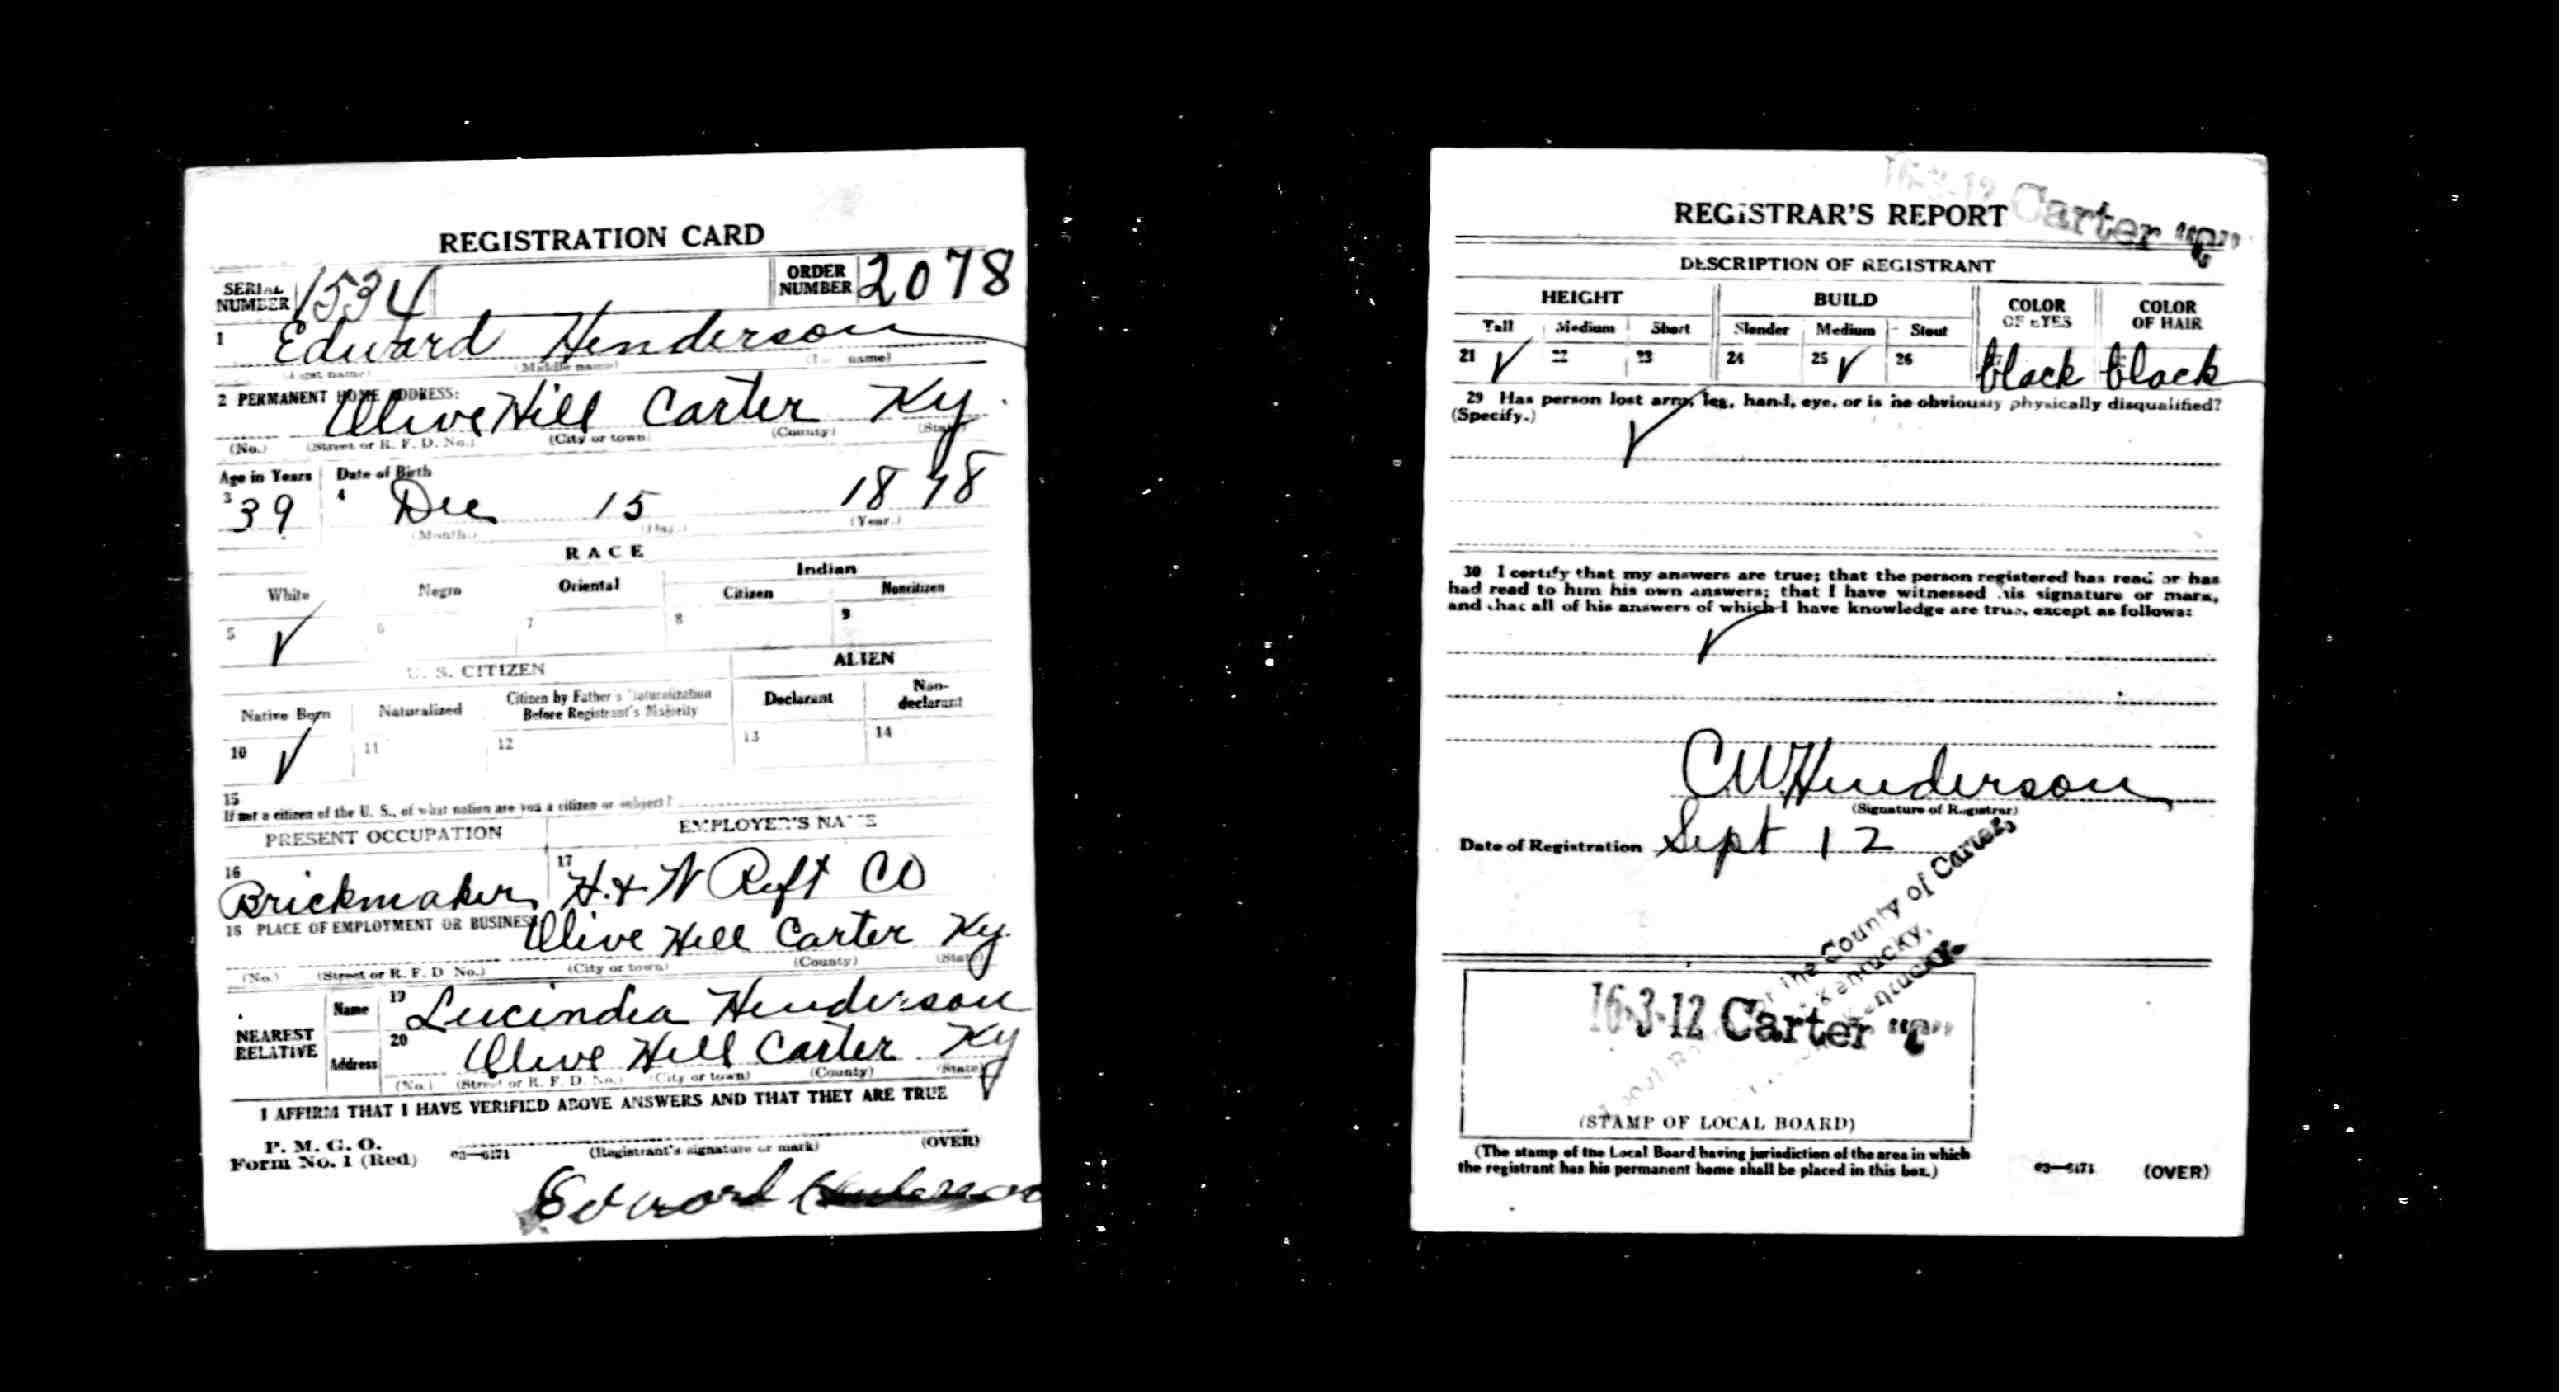 REGISTRATION CARD
SERIAL NUMBER 1534 ORDER NUMBER 2078
1 Edward Henderson
(Middle name) name)
2 PERMANENT HOME ADDRESS:
Olive Hill Carter Ky
(No.) (Street or R. F. D. No.) (City or town) (County) (State)
Age in Years Date of Birth
3 39 4 Dec 15 1878
(Month.) (Day.) (Year.)
RACE
White Negro Oriental Indian
Citizen Noncitizen
5 ✓ 6 7 8 9
U. S. CITIZEN ALIEN
Native Born Naturalized Citizen by Father's Naturalization Before Registrant's Majority Declarant Non-declarant
10 ✓ 11 12 13 14
15
If not a citizen of the U. S., of what nation are you a citizen or subject?
PRESENT OCCUPATION EMPLOYER'S NAME
16 Brickmaker 17 H. & W Reft Co
18 PLACE OF EMPLOYMENT OR BUSINESS
Olive Hill Carter Ky.
(No.) (Street or R. F. D. No.) (City or town) (County) (State)
NEAREST RELATIVE
Name 19 Lucindia Henderson
Address 20 Olive Hill Carter Ky
(No.) (Street or R. F. D. No.) (City or town) (County) (State)
I AFFIRM THAT I HAVE VERIFIED ABOVE ANSWERS AND THAT THEY ARE TRUE
P. M. G. O.
Form No. 1 (Red) 03—6171 (Registrant's signature or mark) (OVER)
Edward Henderson
16-3-12 Carter "C"
REGISTRAR'S REPORT
DESCRIPTION OF REGISTRANT
HEIGHT BUILD COLOR OF EYES COLOR OF HAIR
Tall Medium Short Slender Medium Stout
21 ✓ 22 23 24 25 ✓ 26 black black
29 Has person lost arm, leg, hand, eye, or is he obviously physically disqualified?
(Specify.)
✓
30 I certify that my answers are true; that the person registered has read or has
had read to him his own answers; that I have witnessed his signature or mark,
and that all of his answers of which I have knowledge are true, except as follows:
✓
C.W. Henderson
(Signature of Registrar)
Date of Registration Sept 12
for the County of Carter,
Kentucky,
Kentucky.
16-3-12 Carter "C"
(STAMP OF LOCAL BOARD)
(The stamp of the Local Board having jurisdiction of the area in which
the registrant has his permanent home shall be placed in this box.) 03—6171 (OVER)